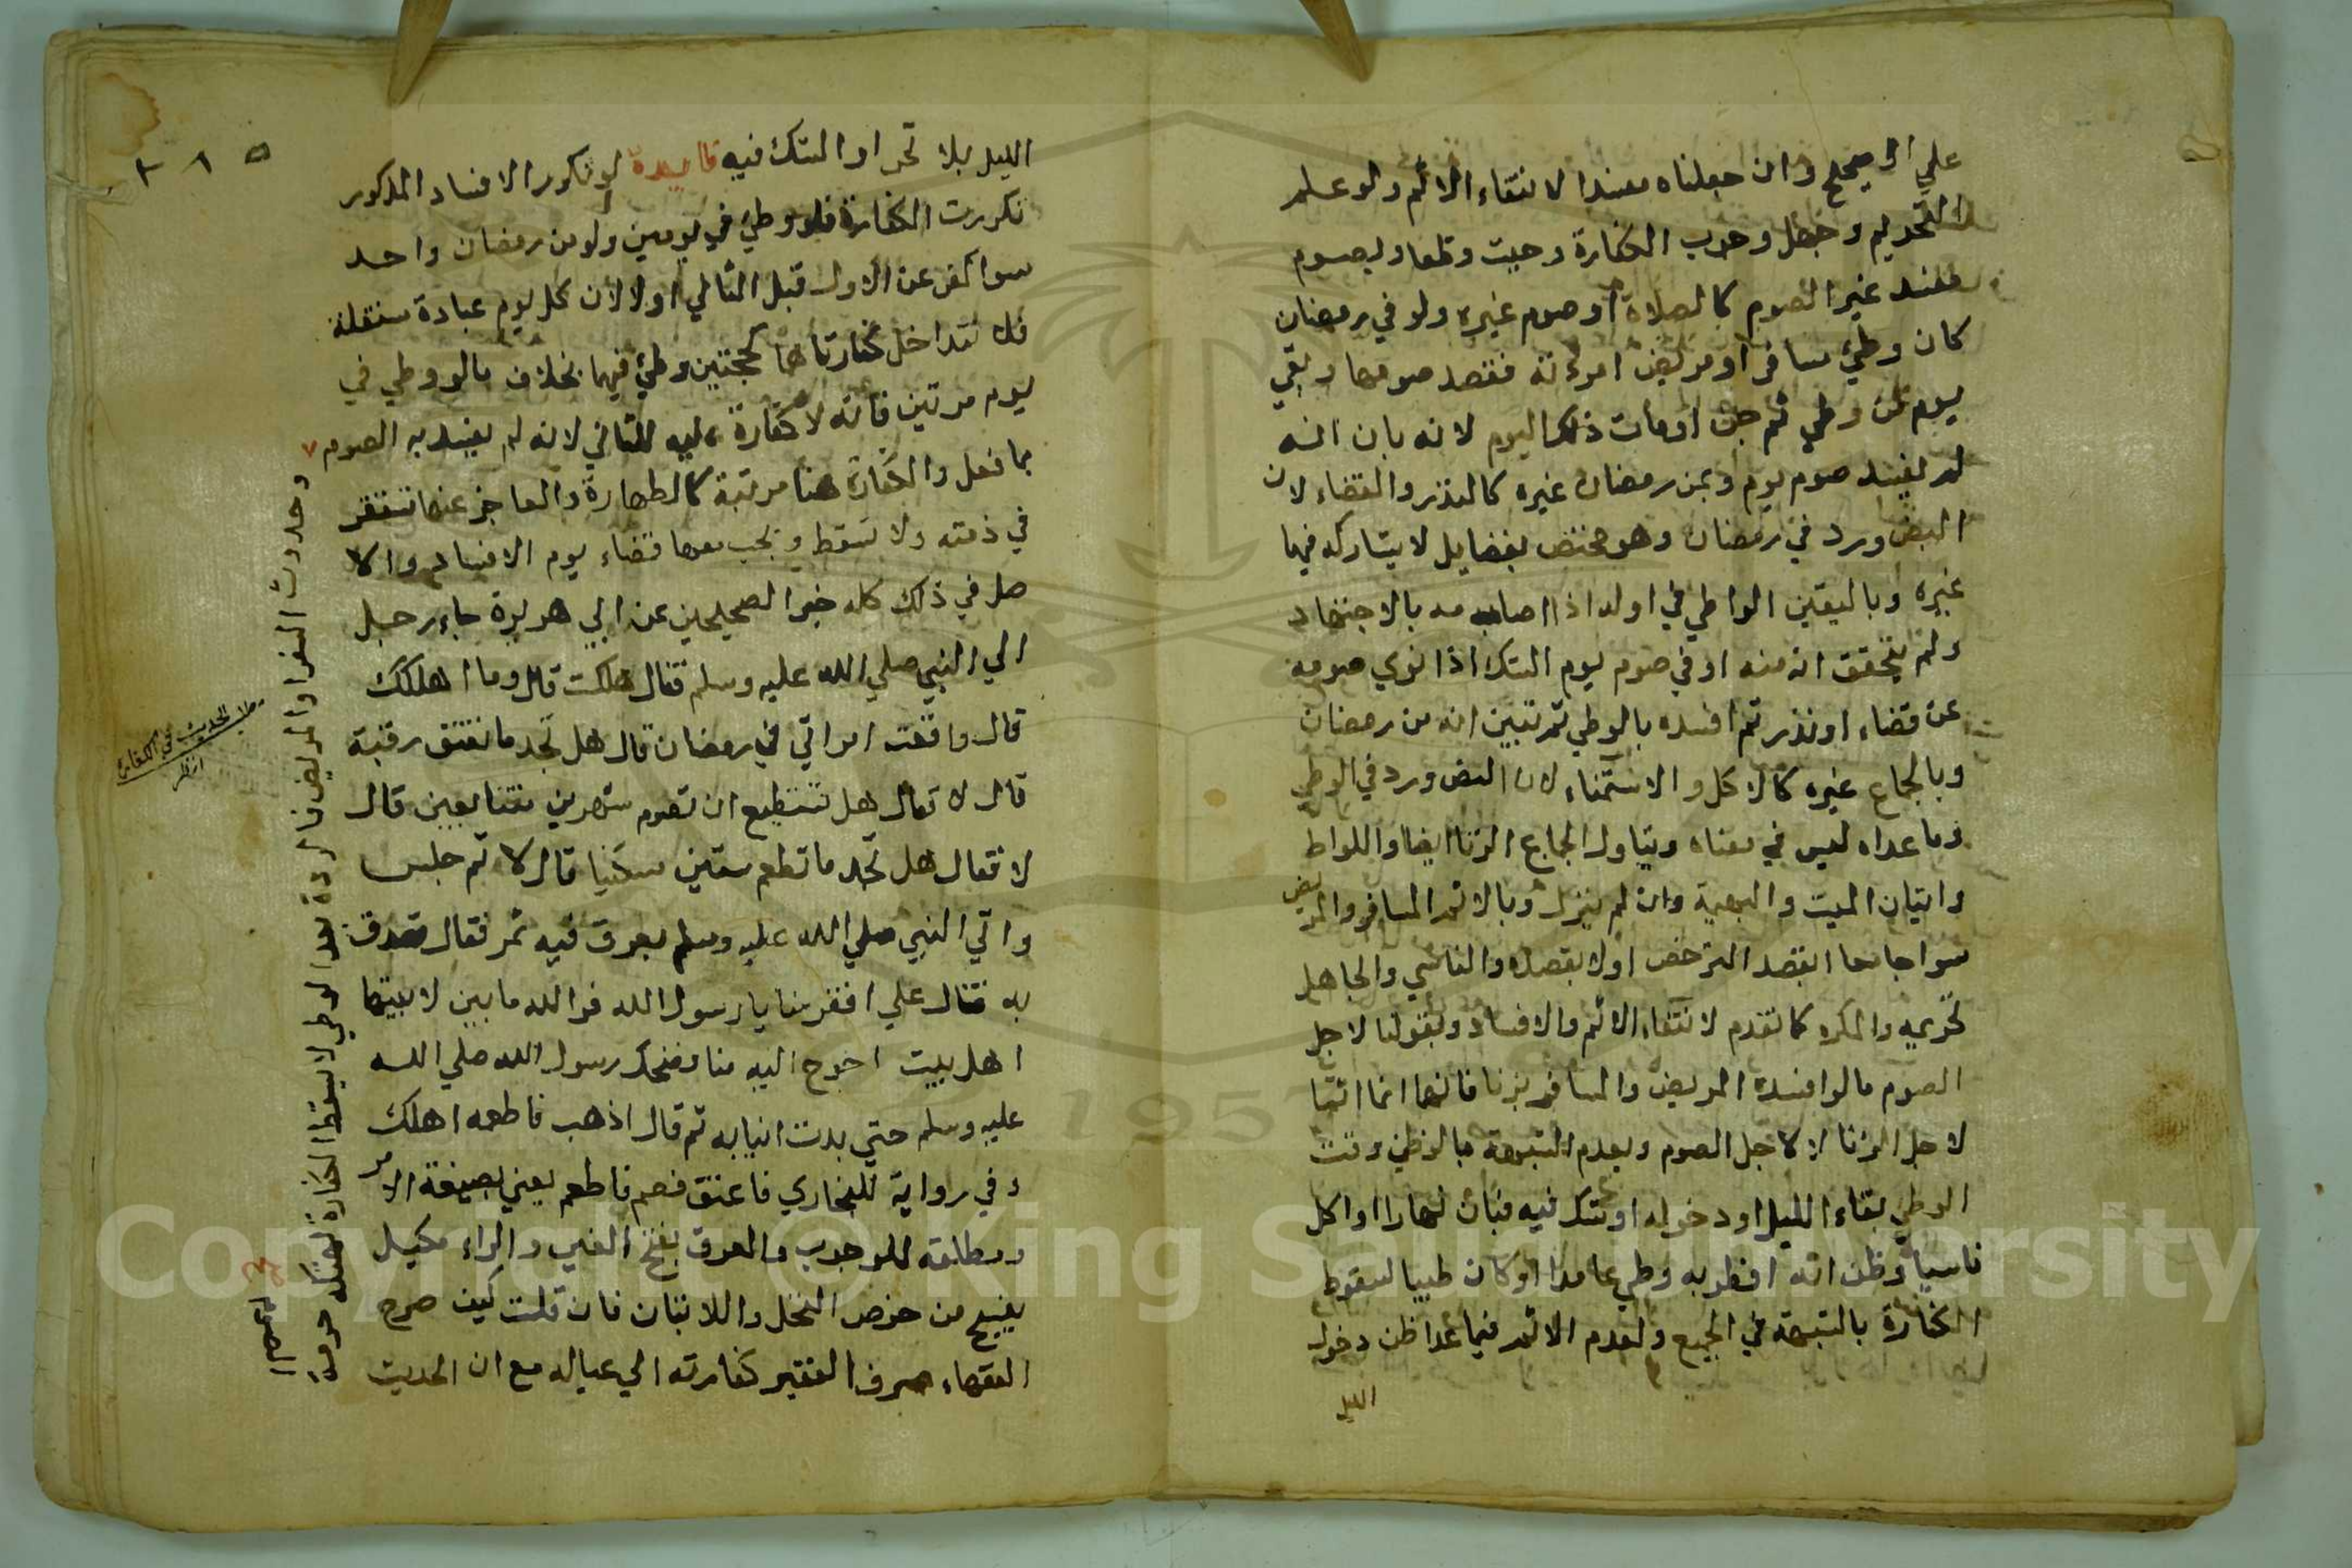 علي الصحيح وان جعلناه مفسدا لانتفاء الاثم ولو علم
التحريم وجهل وجوب الكفارة وجبت وقطعا وبصوم
مفسد غير الصوم كالصلاة او صوم غيره ولو في رمضان
كان وطئ مسافر او مريض امراته ففسد صومها وبقي
يوم من وطي ثم جن او مات ذلك اليوم لانه بان انه
لم يفسد صوم يوم وبمن رمضان غيره كالنذر والقضاء لان
النص ورد في رمضان وهو مختص بفضايل لا يشاركه فيها
غيره وباليقين الواطي في اوله اذا صامه بالاجتهاد
ولم يتحقق انه منه او في صوم يوم الشك اذا نوي صومه
عن قضاء او نذر ثم افسده بالوطي ثم تبين انه من رمضان
وبالجماع غيره كالاكل والاستمناء لان النص ورد في الوطي
وما عداه ليس في معناه ويتناول الجماع الزنا ايضا واللواط
واتيان الميت والبهيمة وان لم ينزل وبالاثم المسافر والمريض
سوا جامعا بقصد الترخص اولا بقصده والناسي والجاهل
تحريمه والمكره كما تقدم لانتفاء الاثم والافساد وبقولنا لاجل
الصوم ما لو افسده المريض والمسافر بزنا فانهما انما اثما
لاجل الزنا لا لاجل الصوم وبعدم الشبهة ما لو ظن وقت
الوطي بقاء الليل او دخوله او شك فيه فبان نهارا او اكل
ناسيا وظن انه افطر به وطي عامدا او كان طبيا لسقوط
الكفارة بالشبهة في الجميع ولعدم الاثم فيما عدا ظن دخول
الليل
٣٨٥
الليل بلا تحر او الشك فيه فايدة لو تكرر الافساد المذكور
تكررت الكفارة فلو وطئ في يومين ولو من رمضان واحد
سوا كفر عن الاول قبل الثاني اولا لان كل يوم عبادة مستقلة
فلا تتداخل كفارتاهما كحجتين وطئ فيهما بخلاف ما لو وطي في
يوم مرتين فانه لا كفارة عليه للثاني لانه لم يفسد به الصوم
بما فعل والكفارة هنا مرتبة كالطهارة والعاجز عنها تستقر
في ذمته ولا تسقط ويجب معها قضاء يوم الافساد والا
صل في ذلك كله خبر الصحيحين عن ابي هريرة جاء رجل
الي النبي صلي الله عليه وسلم فقال هلكت قال وما اهلكك
قال واقعت امراتي في رمضان قال هل تجد ما تعتق رقبة
قال لا قال هل تستطيع ان تصوم شهرين متتابعين قال
لا فقال هل تجد ما تطعم ستين مسكينا قال لا ثم جلس
واتي النبي صلي الله عليه وسلم بعرق فيه تمر فقال تصدق
به فقال علي افقر منا يا رسول الله فوالله ما بين لابيتها
اهل بيت احوج اليه منا فضحك رسول الله صلي الله
عليه وسلم حتي بدت انيابه ثم قال اذهب فاطعمه اهلك
وفي رواية للبخاري فاعتق فصم فاطعم يعني بصيغة الامر
ومطلقه للوجوب والعرق بفتح العين والراء مكيل
ينسج من خوص النخل واللا نتان فان قلت كيف صرح
الفقهاء صرف الفقير كفارته الي عياله مع ان الحديث
وحدوث السفر او المرض او الردة بعد الوطي لا يسقط الكفارة لهتكه حرمة
الصوم
صح
الحديث في الكفارة
انظر
Copyright © King Saud University
1957